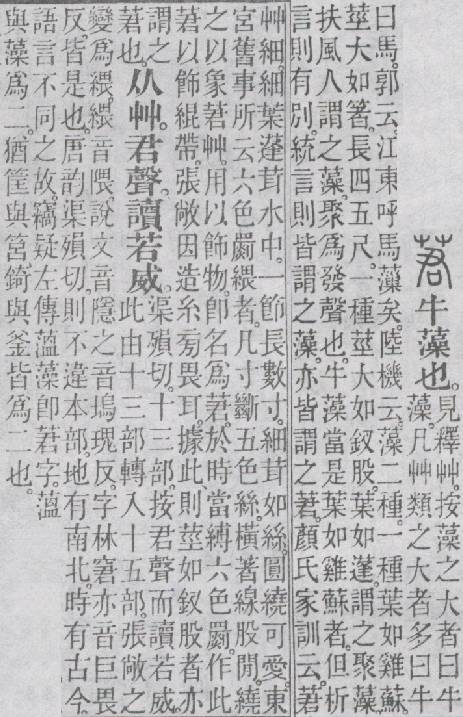 莙牛藻也。
見釋艸。按藻之大者曰牛
藻。凡艸類之大者多曰牛
曰馬。郭云。江東呼馬藻矣。陸機云。藻二種。一種葉如雞蘇。
莖大如箸。長四五尺。一種莖大如釵股。葉如蓬。謂之聚藻。
扶風人謂之藻。聚爲發聲也。牛藻當是葉如雞蘇者。但析
言則有別。統言則皆謂之藻。亦皆謂之莙。顏氏家訓云。莙
艸細細葉蓬茸水中。一節長數寸。細茸如絲。圓繞可愛。東
宮舊事所云六色罽䋿者。凡寸斷五色絲。橫著線股閒繞
之以象莙艸。用以飾物。卽名爲莙。於時當縛六色罽。作此
莙以飾緄帶。張敞因造糸旁畏耳。據此則莖如釵股者亦
謂之
莙也。
从艸君聲。讀若威。
渠殞切。十三部。按君聲而讀若威。
此由十三部轉入十五部。張敞之
變爲䋿。䋿音隈。說文音隱之音塢瑰反。字林窘亦音巨畏
反。皆是也。唐韵渠殞切。則不違本部。地有南北。時有古今。
語言不同之故。竊疑左傳薀藻卽莙字。薀
與藻爲二。猶筐與筥錡與釜皆爲二也。